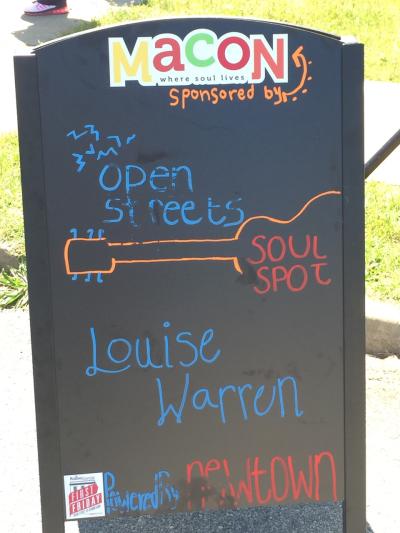 MACON
where soul lives
sponsored by
open
streets
SOUL
SPOT
Louise
Warren
Powered By newtown
FIRST
FRIDAY